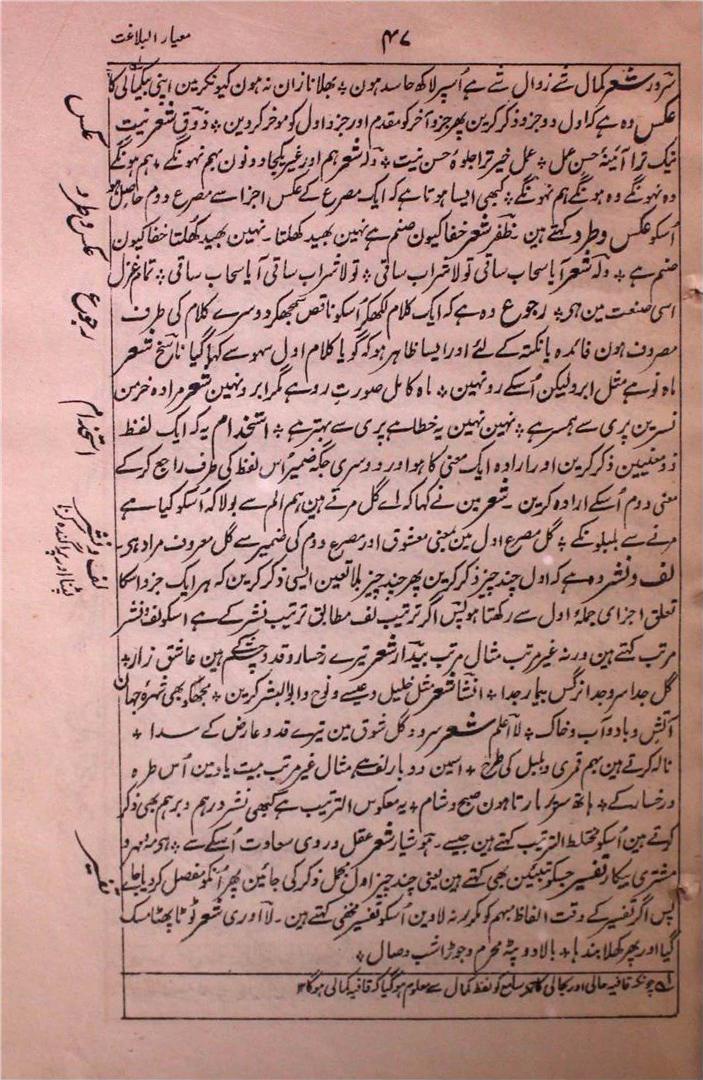 معیار البلاغت
۴۷
سرور شعر کمال شے زوال شے ہے اُسپر لاکھ حاسد ہون ٭ بھلا نازان نہ ہون کیونکر مین اپنی بیکمالی کا
عکس وہ ہے کہ اول دو جزو ذکر کرین پھر جزو آخر کو مقدم اور جزو اول کو موخر کر دین ٭ ذوق شعر نیت
نیک ترا آئینۂ حسن عمل ٭ عمل خیر ترا جلوۂ حسن نیت ٭ ولہ شعر ہم اور غیر یکجا دونون بہم نہونگے ٭ ہم ہونگے
وہ نہونگے وہ ہونگے ہم نہونگے ٭ کبھی ایسا ہوتا ہے کہ ایک مصرع کے عکس اجزا سے مصرع دوم حاصل ہو
اُسکو عکس و طرد کہتے ہین ۔ ظفر شعر خفا کیون صنم ہے نہین بھید کھلتا ۔ نہین بھید کھلتا خفا کیون
صنم ہے ٭ ولہ شعر آیا سحاب ساقی تو لا شراب ساقی ٭ تو لا شراب ساقی آیا سحاب ساقی ٭ تمام غزل
اسی صنعت مین ہی ٭ رجوع وہ ہے کہ ایک کلام لکھکر اُسکو ناقص سمجھکر دوسرے کلام کی طرف
مصروف ہون فائدہ یا نکتہ کے لئے اور ایسا ظاہر ہو کہ گویا کلام اول سہو سے کہا گیا ناسخ شعر
ماہ نو ہے مثل ابرو لیکن اُسکے رو نہین ٭ ماہ کامل صورت رو ہے مگر ابرو نہین شعر مرادہ خرمن
نسرین پری سے ہمسر ہے ٭ نہین نہین یہ خطا ہے پری سے بہتر ہے ٭ استخدام یہ کہ ایک لفظ
ذو معنیین ذکر کرین اور ارادہ ایک معنی کا ہو اور دوسری جگہ ضمیر اُس لفظ کی طرف راجع کر کے
معنی دوم اُسکے ارادہ کرین ۔ شعر مین نے کہا کہ اے گل مرتے ہین ہم الم سے بولا کہ اُسکو کیا ہے
مرنے سے بلبلونکے ٭ گل مصرع اول مین بمعنی معشوق اور مصرع دوم کی ضمیر سے گل معروف مراد ہی ۔
لف و نشر وہ ہے کہ اول چند چیز ذکر کرین پھر چند چیز بلا تعین ایسی ذکر کرین کہ ہر ایک جزو اسکا
تعلق اجزای جملۂ اول سے رکھتا ہو پس اگر ترتیب لف مطابق ترتیب نشر کے ہے اسکو لف و نشر
مرتب کہتے ہین ورنہ غیر مرتب مثال مرتب بیدار شعر تیرے رخسار و قد و چشم کے ہین عاشق زار ٭
گل جدا سرو جدا نرگس بیمار جدا ٭ انشا شعر مثل خلیل و عیسے و نوح و ابوالبشر کرین ٭ مجھکو بھی شہرۂ جہان
آتش و باد و آب و خاک ٭ لا اعلم شعر سرو و گل شوق مین تیرے قد و عارض کے سدا +
نالہ کرتے ہین بہم قمری و بلبل کی طرح + اسمین دو بار لف ہے مثال غیر مرتب بیت یاد مین اُس طرہ
و رخسار کے ٭ ہاتھ سر پر مارتا ہون صبح و شام + یہ معکوس الترتیب ہے کبھی نشر درہم و برہم بھی ذکر
کرتے ہین اُسکو مختلط الترتیب کہتے ہین جیسے ۔ ہوشیار شعر عقل و روی سعادت اُسکے سے ٭ ہی مہ و مہر و
مشتری بیکار تفسیر جسکو تبیین بھی کہتے ہین یعنی چند چیز اول مجمل ذکر کی جائین پھر اُنکو مفصل کر دیا جاے
پس اگر تفسیر کے وقت الفاظ مبہم کو مکرر نہ لاوین اُسکو تفسیر خفی کہتے ہین ۔ لا ادری شعر ٹوٹا پھٹا مسک
گیا اور پھر کھلا بندہا + بالا دوپٹہ محرم و جوڑا شب وصال ٭
لہ چونکہ قافیہ حالی اور بجالی کا تھا سامع کو لفظ کمال سے معلوم ہو گیا کہ قافیہ کمالی ہوگا ۱۲
عکس
عکس و طرد
رجوع
استخدام
لف و نشر
لپٹنا اور پراگندہ کرنا
تفسیر